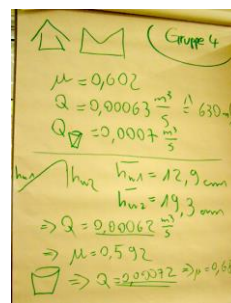 Gruppe 4
μ = 0,602
Q = 0,00063 m³/s ≙ 630
Q = 0,0007 m³/s
h̄ü1 = 12,9 cm
hü1 hü2 h̄ü2 = 19,3 cm
⇒ Q = 0,00062 m³/s
⇒ μ = 0,592
⇒ Q = 0,00072 ⇒ μ = 0,6